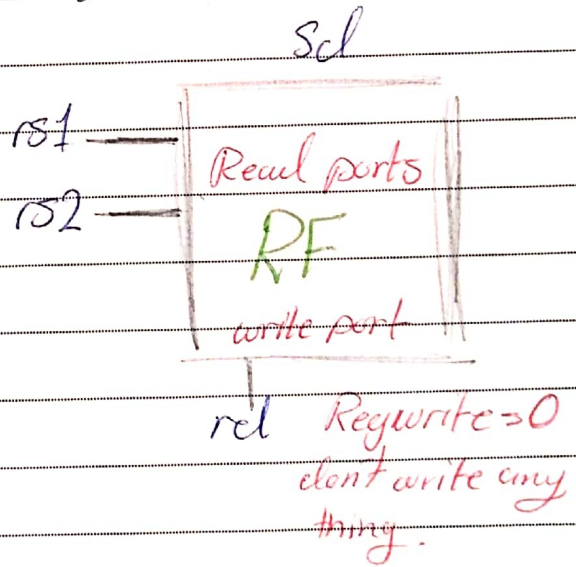 Scl
rs1
Read ports
rs2
RF
write port
rd Regwrite=0
dont write any
thing.